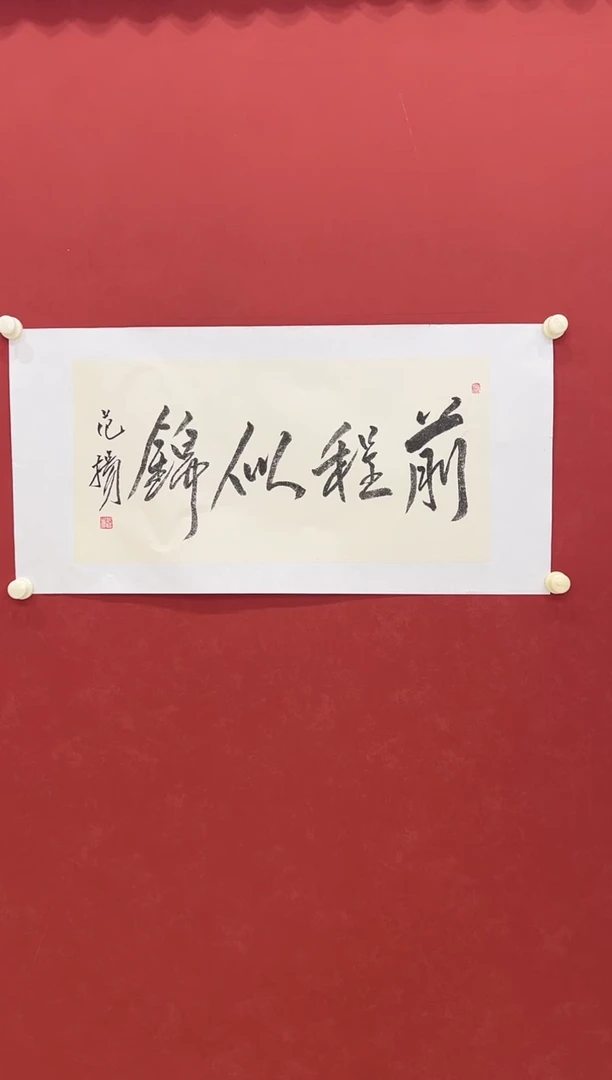 前程似錦
范揚